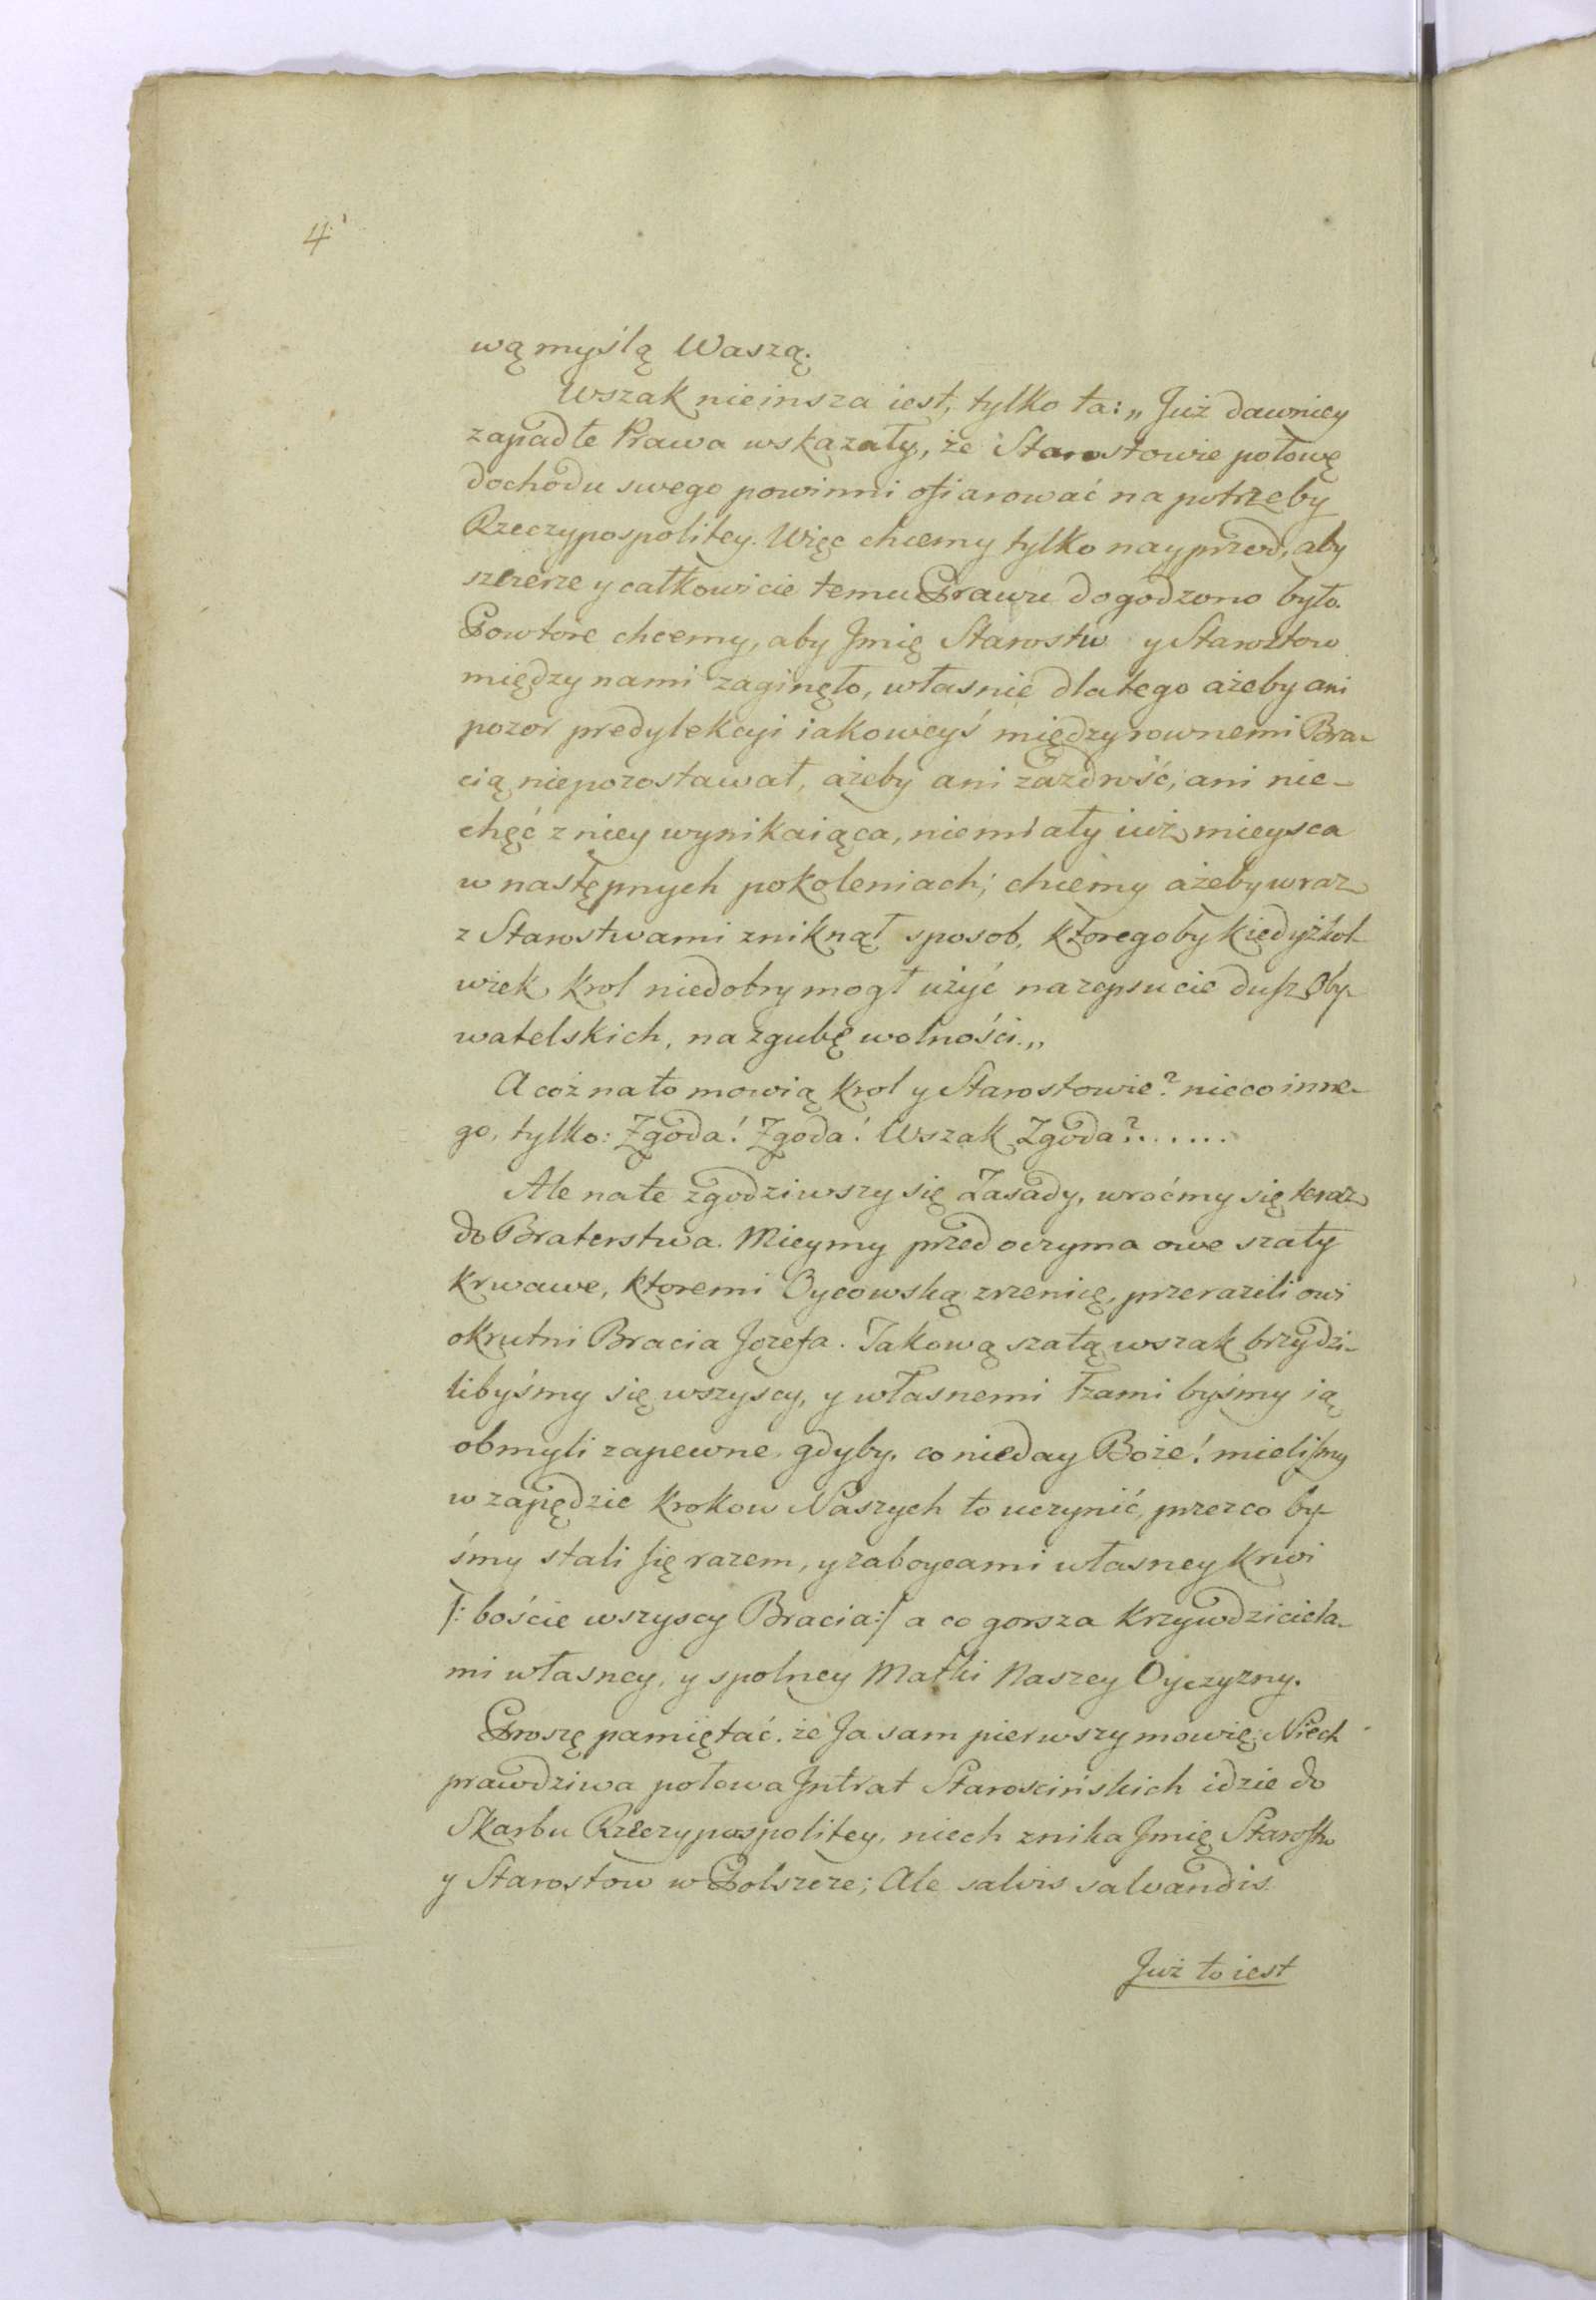 4.
wą myślą Waszą.
Wszak nieinsza iest, tylko ta: „Już dawniey
zapadłe Prawa wskazały, że Starostowie połowę
dochodu swego powinni ofiarować na potrzeby
Rzeczypospolitey. Więc chcemy tylko nayprzod, aby
szczerze y całkowicie temu Prawu dogodzono było.
Powtore chcemy, aby Jmię Starostw y Starostow
między nami zaginęło, własnie dlatego ażeby ani
pozor predylekcyi iakoweyś między rownemi Bra-
cią niepozostawał, ażeby ani zazdrość, ani nie-
chęć z niey wynikaiąca, niemiały iuż mieysca
w następnych pokoleniach; chcemy ażeby wraz
z Starostwami zniknął sposob, ktoregoby kiedyżkol-
wiek Krol niedobry mogł użyć na zepsucie dusz Oby-
watelskich, na zgubę wolności.„
A coż na to mowią Krol y Starostowie? nieco inne-
go, tylko: Zgoda! Zgoda! Wszak Zgoda?......
Ale na te zgodziwszy się Zasady, wroćmy się teraz
do Braterstwa. Mieymy przed oczyma owe szaty
krwawe, ktoremi Oycowską zrzenicę, przerazili owi
okrutni Bracia Jozefa. Takową szatą wszak brzydzi-
libyśmy się wszyscy, y własnemi łzami byśmy ią
obmyli zapewne, gdyby, co nieday Boże! mieliśmy
w zapędzie krokow Naszych to uczynić, przez co by-
śmy stali się razem, y zaboycami własney krwi
/: boście wszyscy Bracia:/ a co gorsza krzywdziciela-
mi własney, y spolney Matki Naszey Oyczyzny.
Proszę pamiętać, że Ja sam pierwszy mowię: Niech
prawdziwa połowa Jntrat Starościńskich idzie do
Skarbu Rzeczypospolitey, niech znika Jmię Starostw
y Starostow w Polszcze; Ale salvis salvandis
Już to iest